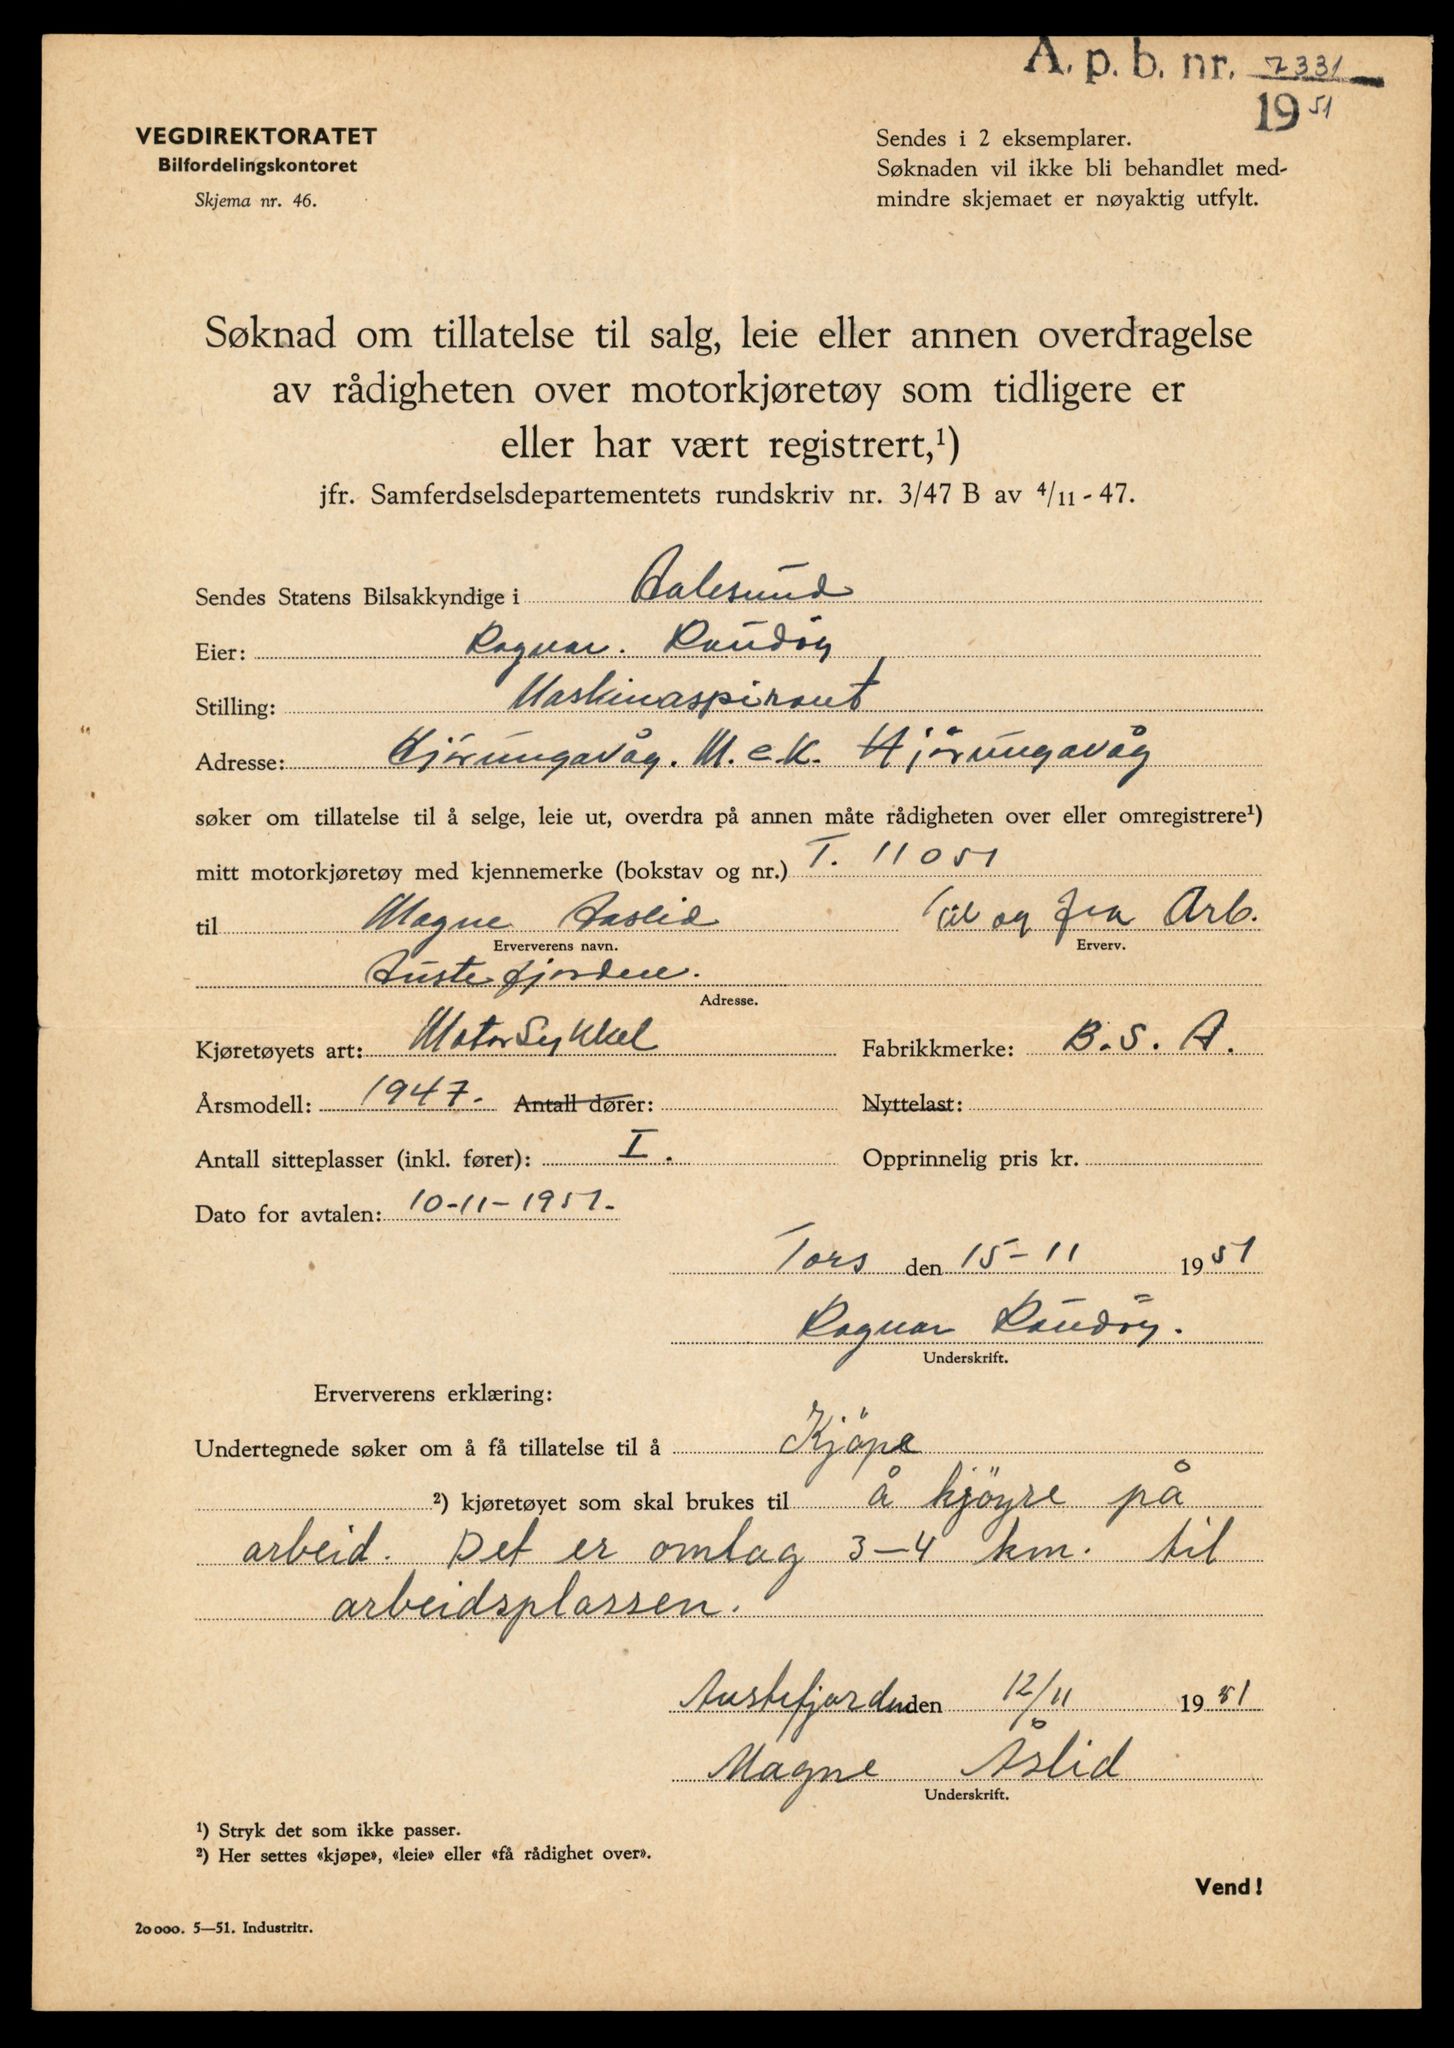 A. p. b. nr. 7331
1951
VEGDIREKTORATET
Bilfordelingskontoret
Skjema nr. 46.
Sendes i 2 eksemplarer.
Søknaden vil ikke bli behandlet med-
mindre skjemaet er nøyaktig utfylt.
Søknad om tillatelse til salg, leie eller annen overdragelse
av rådigheten over motorkjøretøy som tidligere er
eller har vært registrert,¹)
jfr. Samferdselsdepartementets rundskriv nr. 3/47 B av 4/11 - 47.
Sendes Statens Bilsakkyndige i Aalesund
Eier: Ragnar. Raudöy
Stilling: Maskinaspirant
Adresse: Hjörungavåg. M.e.K. Hjörungavåg
søker om tillatelse til å selge, leie ut, overdra på annen måte rådigheten over eller omregistrere¹)
mitt motorkjøretøy med kjennemerke (bokstav og nr.) T. 11051
til Magne Aaslid Til og fra Arb.
Erververens navn. Erverv.
Austefjorden.
Adresse.
Kjøretøyets art: MotorSykkel Fabrikkmerke: B. S. A.
Årsmodell: 1947. Antall dører: Nyttelast:
Antall sitteplasser (inkl. fører): I. Opprinnelig pris kr.
Dato for avtalen: 10-11-1951.
Tors den 15-11 1951
Ragnar Raudöy.
Underskrift.
Erververens erklæring:
Undertegnede søker om å få tillatelse til å Kjöpe
²) kjøretøyet som skal brukes til å kjöyre på
arbeid. Det er omlag 3-4 km. til
arbeidsplassen.
Austefjorden den 12/11 1951
Magne Åslid
Underskrift.
¹) Stryk det som ikke passer.
²) Her settes «kjøpe», «leie» eller «få rådighet over».
Vend!
20 000. 5—51. Industritr.